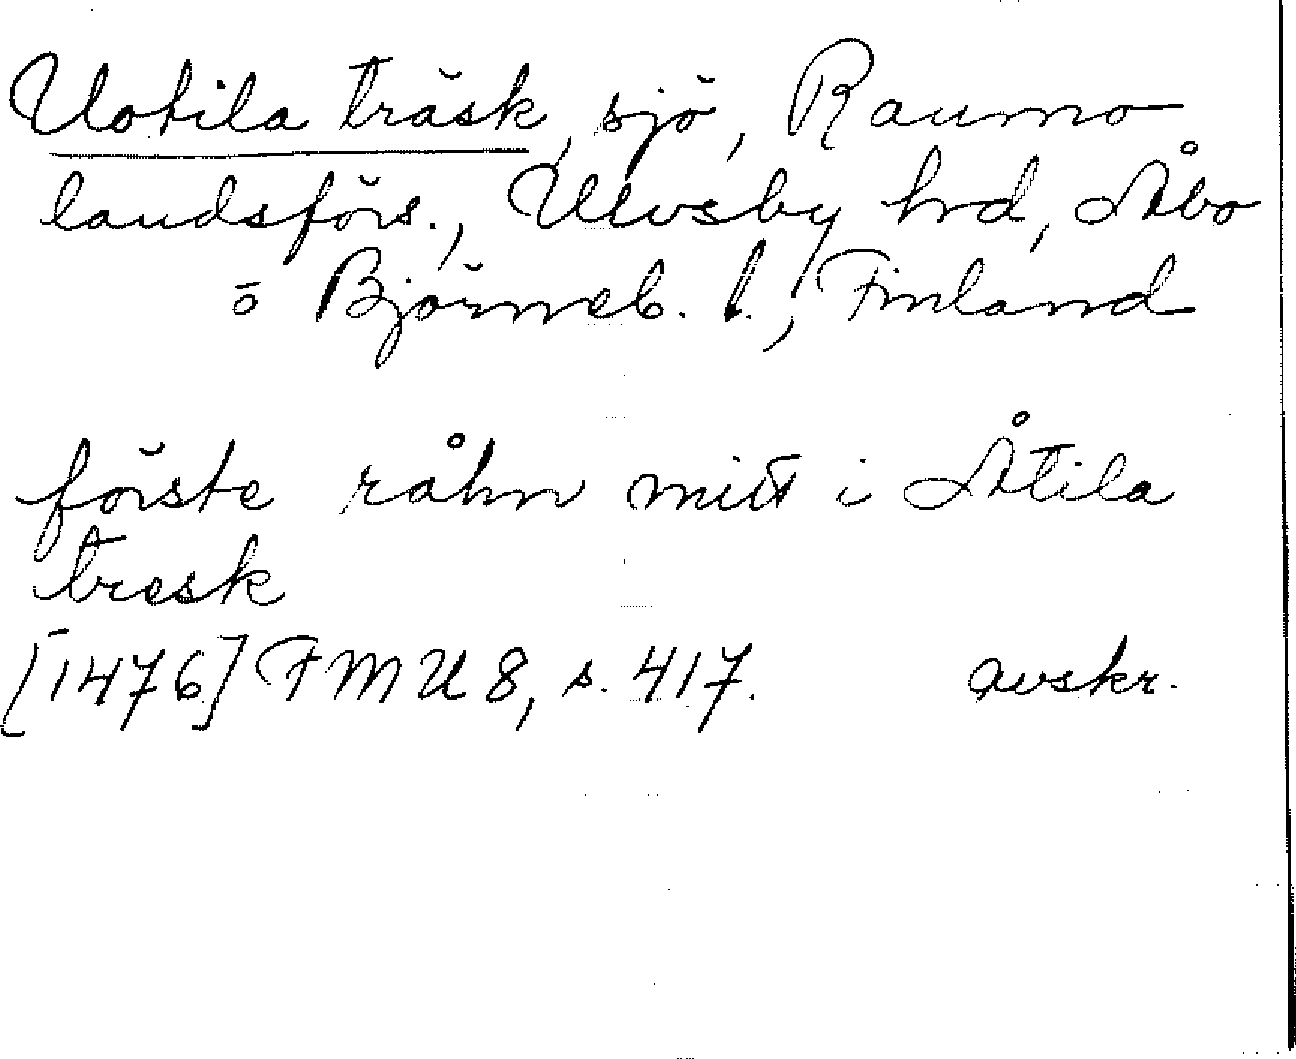 Uotila träsk, sjö, Raumo
landsförs., Ulvsby hrd, Åbo
o Björneb. l., Finland
förste råhn mitt i Åtila
tresk
[1476] FMU 8, s. 417. avskr.